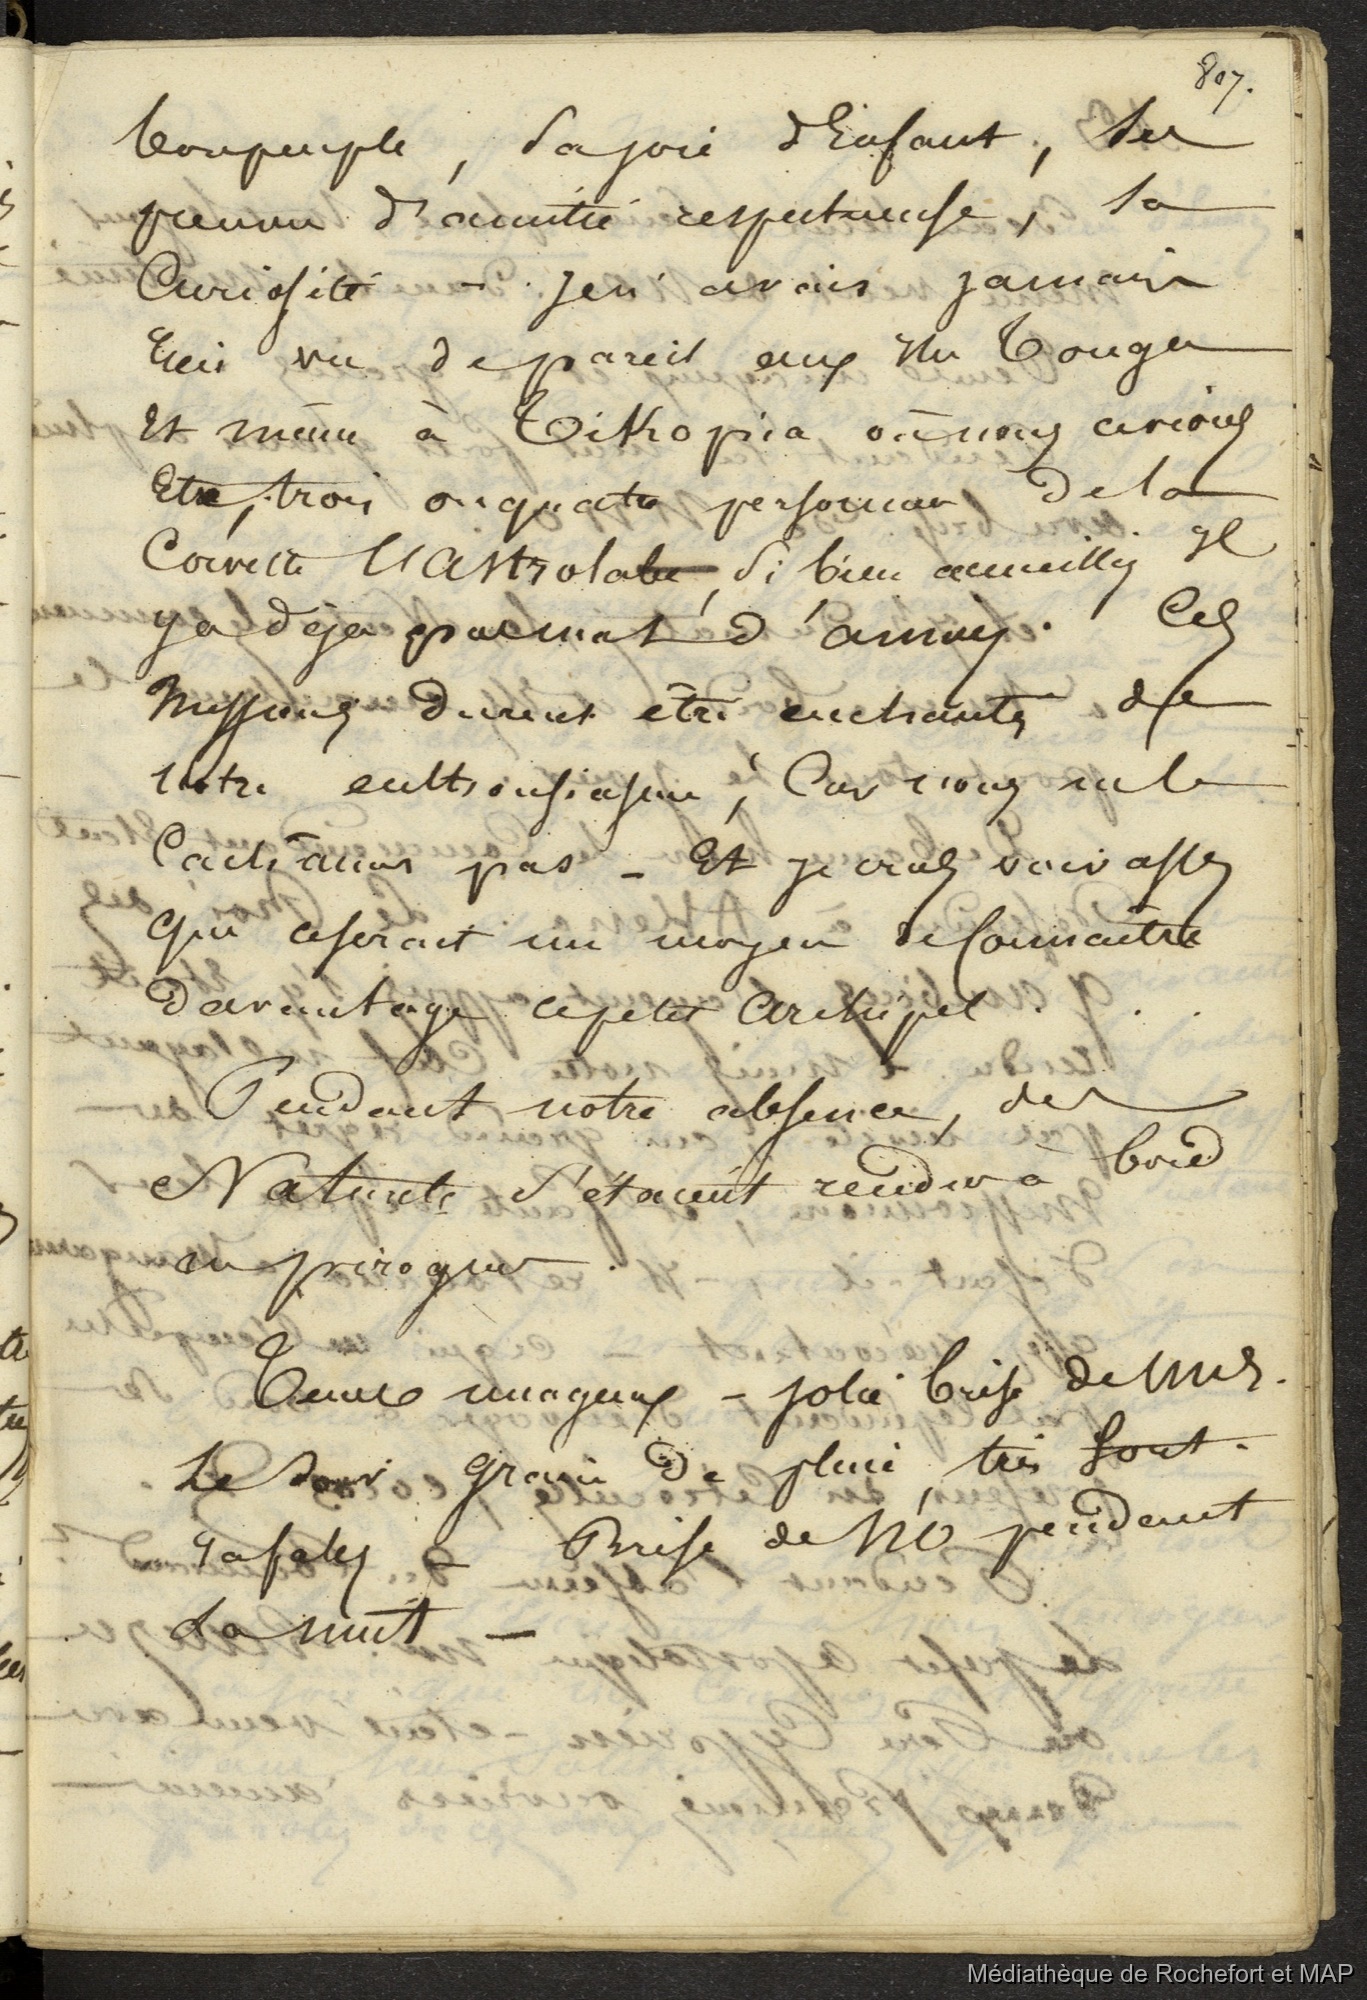 807.
bon peuple, sa joie d'Enfant, ses
preuves d'amitié respectueuse, sa
Curiosité - je n'avais jamais
Rien vu de pareil aux îles Tonga
Et même à Tikopia où nous avions
Eté, trois ou quatre personnes de la
Corvette l'Astrolabe, si bien accueillis Il
y a déjà pas mal d'années. Ces
Messieurs durent être enchantés de
notre enthousiasme, Car nous ne le
Cachâmes pas - Et je crus voir assez
que ce serait un moyen de Connaître
davantage ce petit Archipel.
Pendant notre absence, des
Naturels s'étaient rendus à bord
en pirogues.
Tems nuageux - jolie brise de
Le soir grain de pluie, très fort.
Rafales - Brise de NO pendant
La nuit -
Médiathèque de Rochefort et MAP